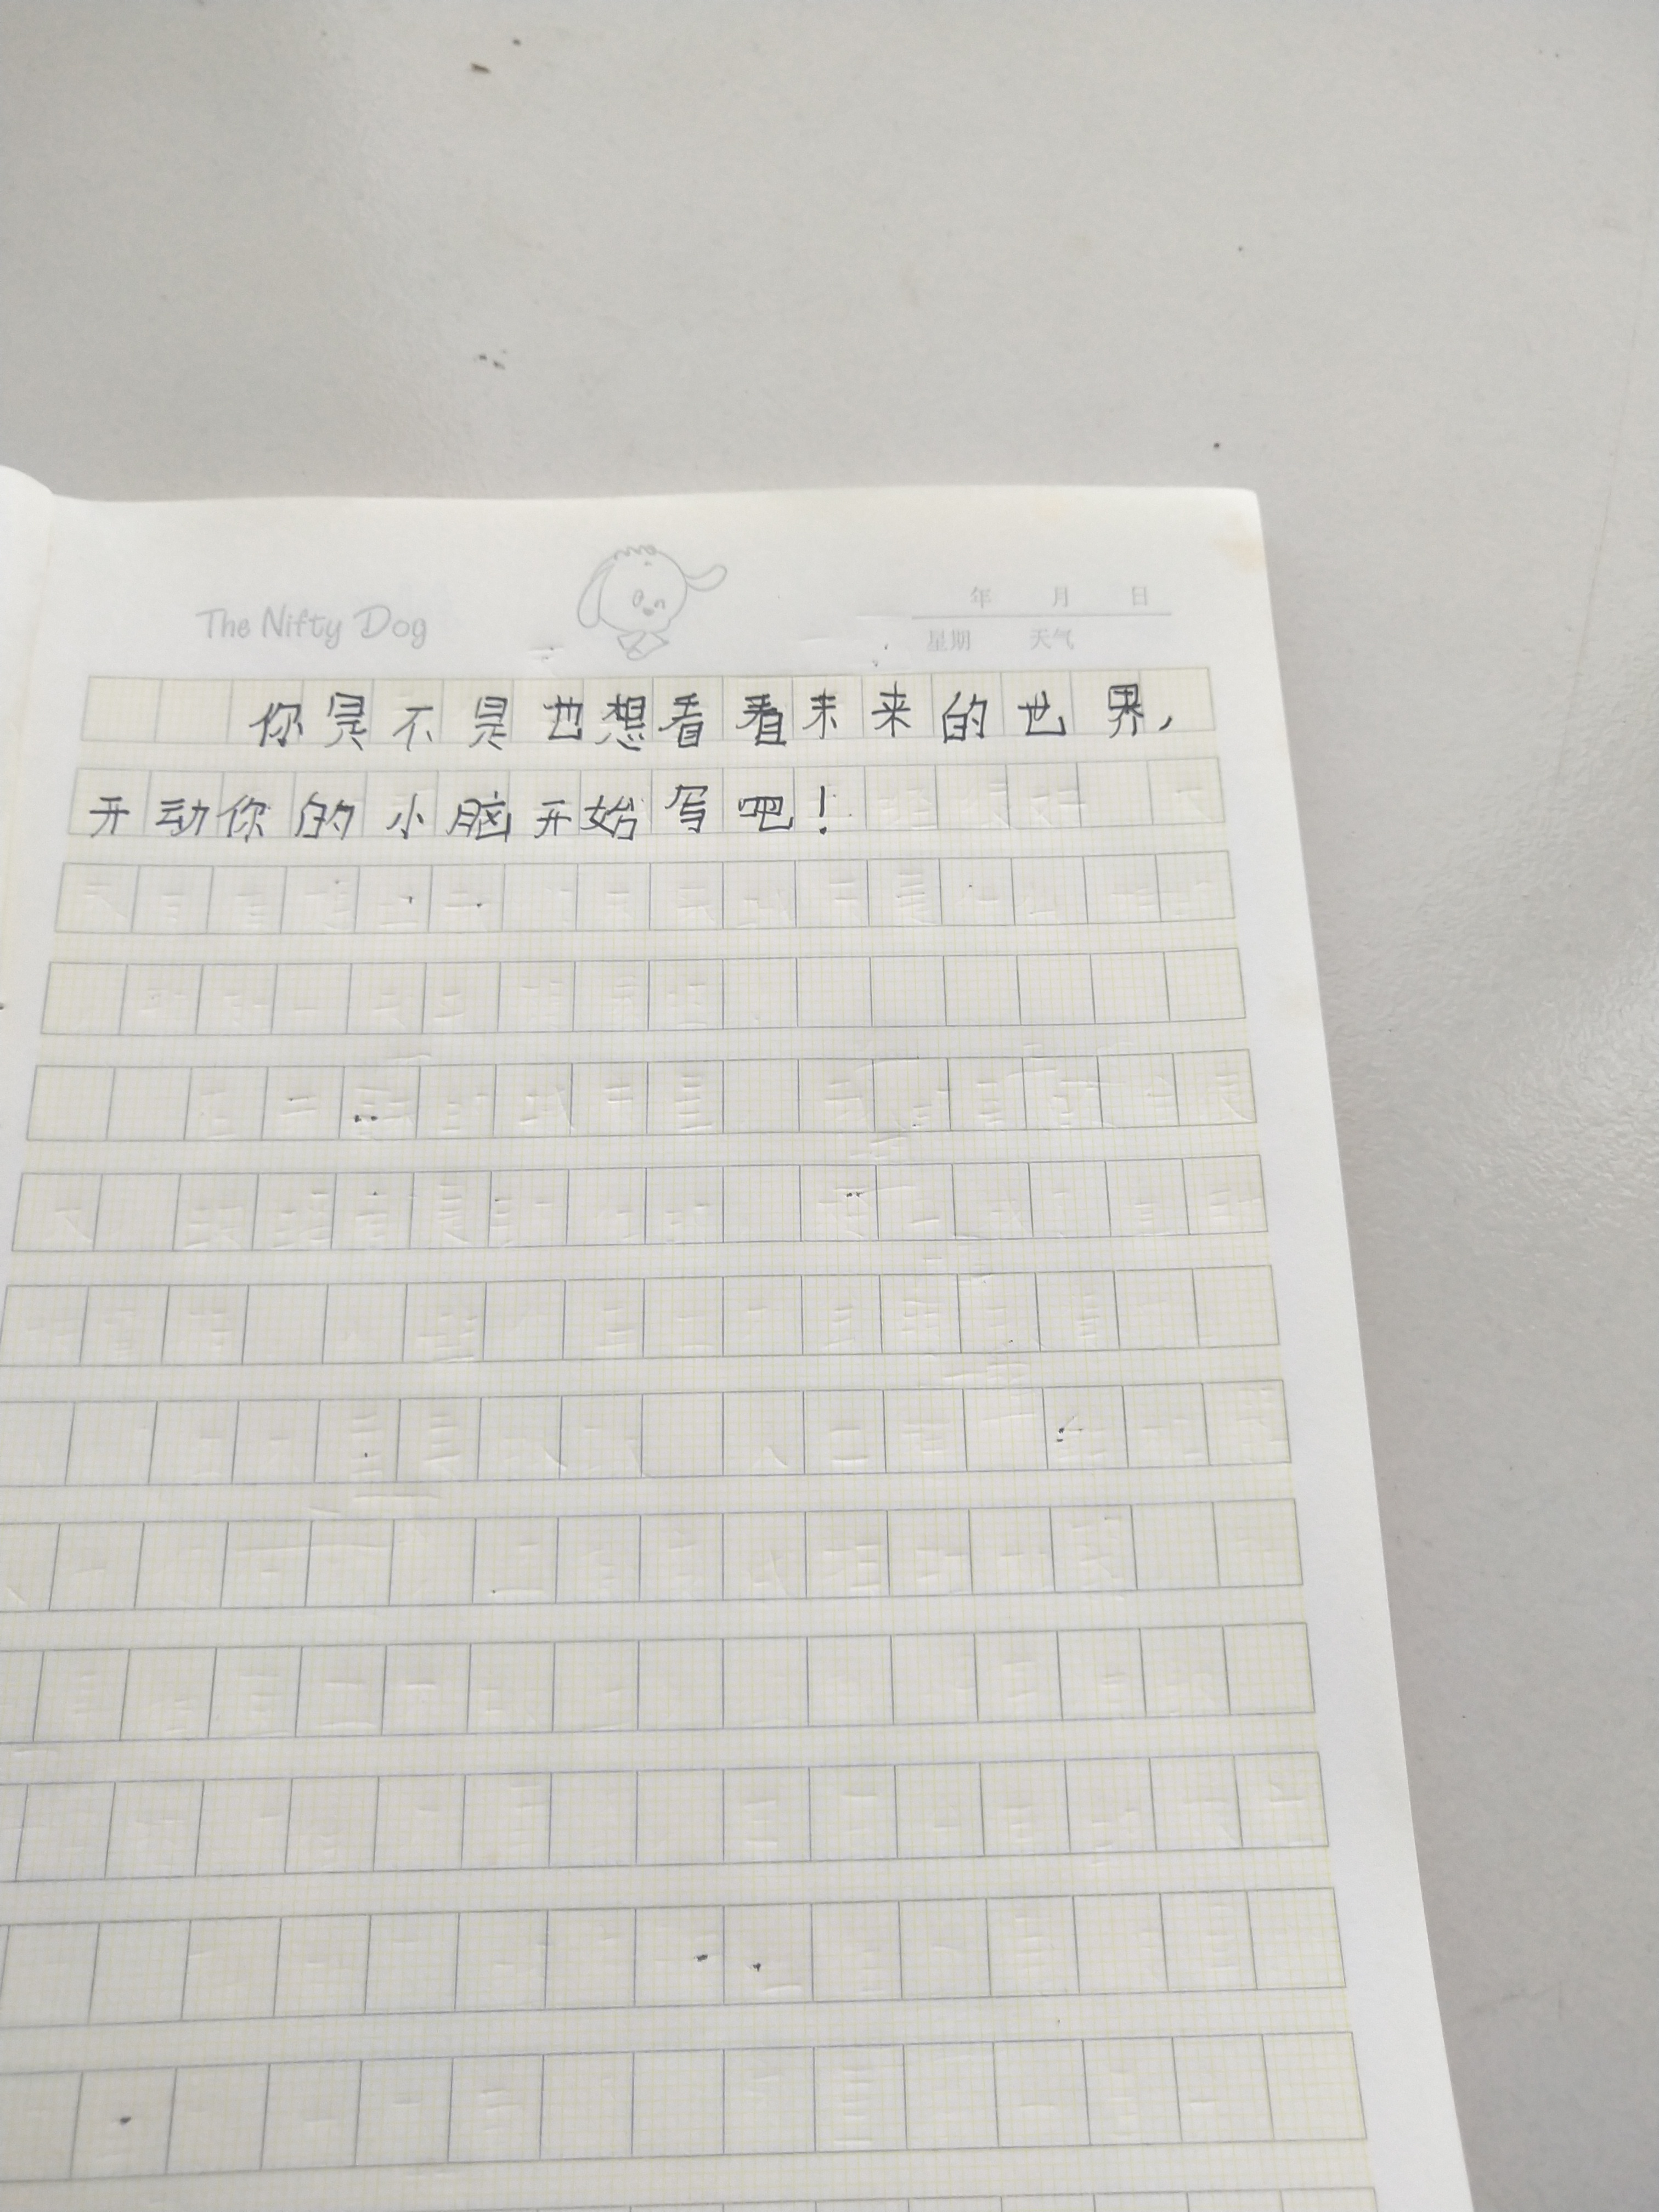 The Nifty Dog
年 月 日
星期 天气
你是不是也想看看未来的世界，
开动你的小脑开始写吧！